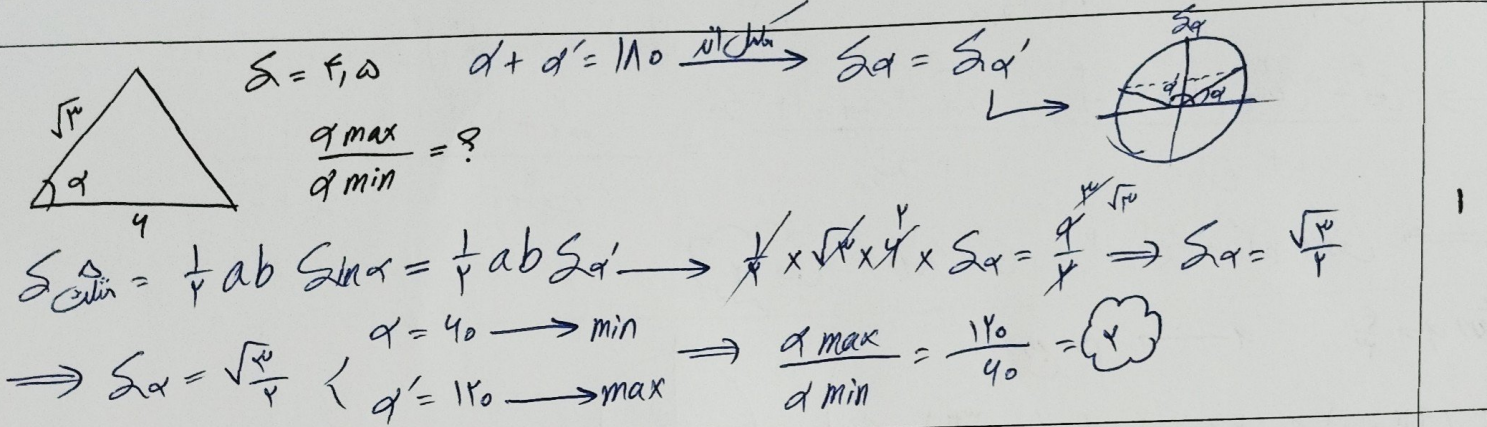 S = ۴,۵    α + α' = ۱۸۰ مکمل اند ⟶ Sα = Sα'    Sα
√۳    α    ۶    α max / α min = ?    ⟶    α'    α
S مثلث = ۱/۲ ab Sinα = ۱/۲ ab Sα' ⟶ ۱/۲ × √۳ × ۶ ۲ × Sα = ۹/۲ ۳ √۳ ⟹ Sα = √۳/۲    ۱
⟹ Sα = √۳/۲ { α = ۶۰ ⟶ min    α' = ۱۲۰ ⟶ max ⟹ α max / α min = ۱۲۰/۶۰ = ۲